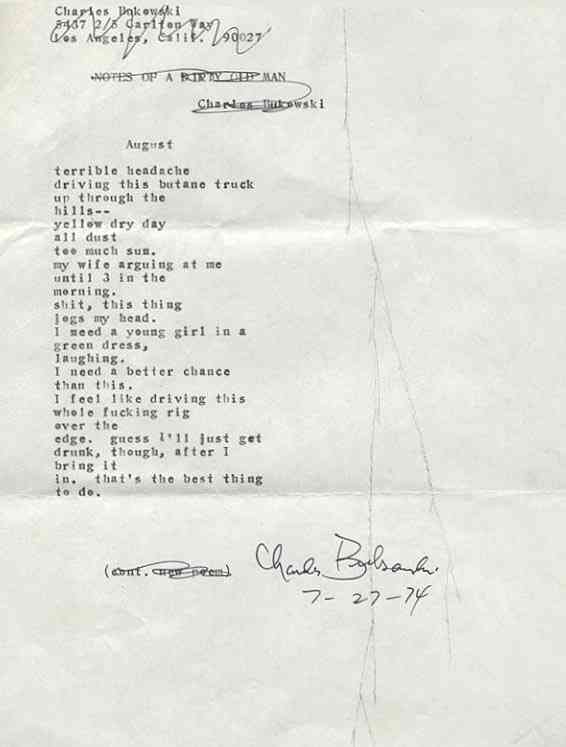 Charles Bukowski
5437 2/5 Carlton Way
Los Angeles, Calif. 90027
NOTES OF A DIRTY OLD MAN
Charles Bukowski
August
terrible headache
driving this butane truck
up through the
hills--
yellow dry day
all dust
too much sun.
my wife arguing at me
until 3 in the
morning.
shit, this thing
jogs my head.
I need a young girl in a
green dress,
laughing.
I need a better chance
than this.
I feel like driving this
whole fucking rig
over the
edge. guess I'll just get
drunk, though, after I
bring it
in. that's the best thing
to do.
(cont. new poem)
Charles Bukowski
7-27-74